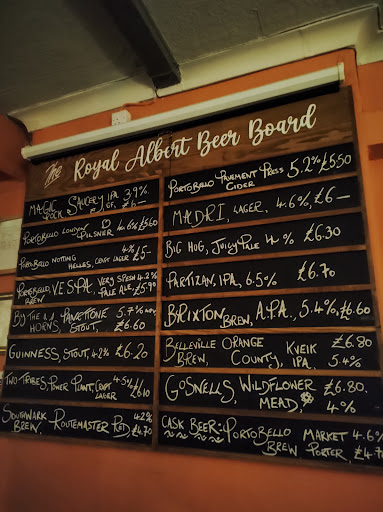 The Royal Albert Beer Board
MAGIC ROCK SAUCERY IPA 3.9% GF, £6—
PORTOBELLO LONDON PILSNER 4.6% £5.60
PORTOBELLO NOTTING HELLES, CRAFT LAGER 4% £5—
PORTOBELLO BREW V.E.S.P.A. VERY SPESH PALE ALE 4.2% £5.90
BY THE HORNS, PANETTONE STOUT, 5.7% £6.60
GUINNESS, STOUT, 4.2% £6.20
TWO TRIBES, POWER PLANT, CRAFT LAGER 4.5% £6.10
SOUTHWARK BREW, ROUTEMASTER RED 4.2% £4.70
PORTOBELLO PAVEMENT PRESS CIDER 5.2% £5.50
MADRI, LAGER, 4.6%, £6—
BIG HUG, JUICY PALE 4% £6.30
PARTIZAN, IPA, 6.5% £6.70
BRIXTON BREW, A.P.A, 5.4%, £6.60
BELLEVILLE BREW, ORANGE COUNTY, KVEIK IPA £6.80 5.4%
GOSNELLS, WILDFLOWER MEAD, £6.80. 4%
CASK BEER: PORTOBELLO MARKET BREW PORTER, 4.6% £4.70